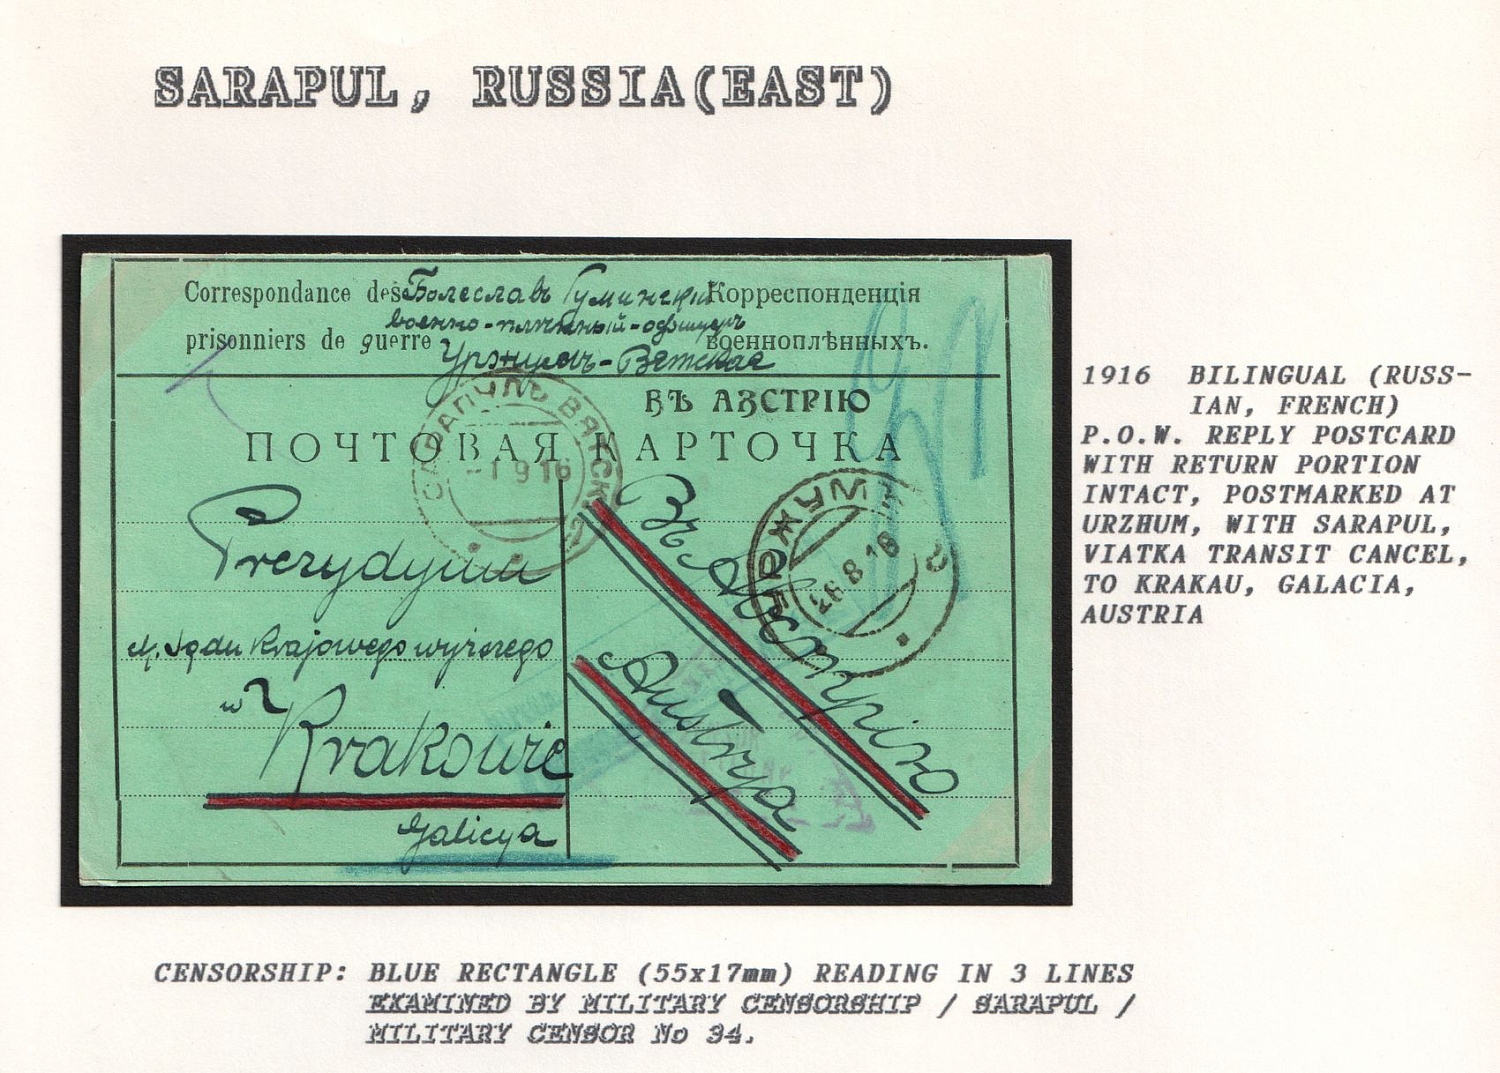 SARAPUL, RUSSIA(EAST)
Correspondance des Болеславъ Гуминскій Корреспонденція
военно-плѣнный-офицеръ
prisonniers de guerre Уржумъ-Вятская военноплѣнныхъ.
ВЪ АВСТРІЮ
ПОЧТОВАЯ КАРТОЧКА
САРАПУЛЪ ВЯТСК.
-1 9 16
УРЖУМ
26 8 16
Въ Австрію
Austrya
Prezydyum
Sądu Krajowego wyższego
w Krakowie
Galicya
1916 BILINGUAL (RUSS-
IAN, FRENCH)
P.O.W. REPLY POSTCARD
WITH RETURN PORTION
INTACT, POSTMARKED AT
URZHUM, WITH SARAPUL,
VIATKA TRANSIT CANCEL,
TO KRAKAU, GALACIA,
AUSTRIA
CENSORSHIP: BLUE RECTANGLE (55x17mm) READING IN 3 LINES
EXAMINED BY MILITARY CENSORSHIP / SARAPUL /
MILITARY CENSOR No 34.